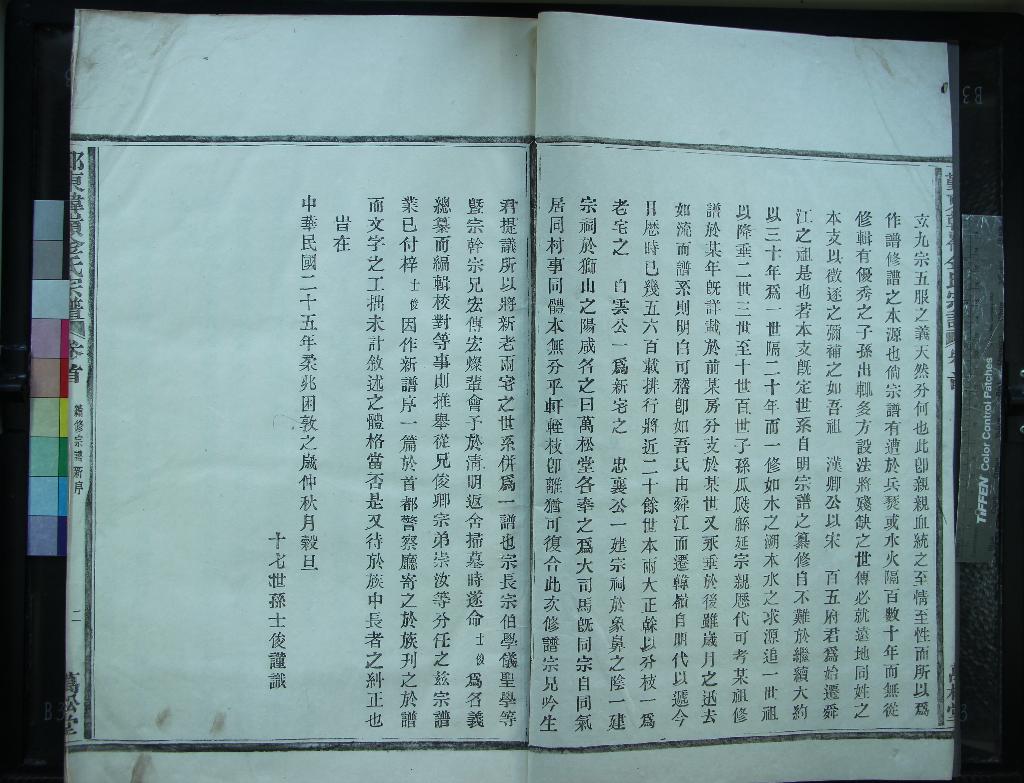 支九宗五服之義天然分何也此卽親親血統之至情至性而所以爲
作譜修譜之本源也倘宗譜有遭於兵燹或水火隔百數十年而無從
修輯有優秀之子孫出輒多方設法將殘缺之世傳必就遠地同姓之
本支以徵逐之彌補之如吾祖 漢卿公以宋 百五府君爲始遷舜
江之祖是也若本支旣定世系自明宗譜之纂修自不難於繼續大約
以三十年爲一世隔二十年而一修如木之溯本水之求源追一世祖
以降垂二世三世至十世百世子孫瓜瓞緜延宗親歷代可考某祖修
譜於某年旣詳載於前某房分支於某世又永垂於後雖歲月之迅去
如流而譜系則明白可稽卽如吾氏由舜江而遷韓嶺自明代以遞今
日歷時已幾五六百載排行將近二十餘世本兩大正榦以分枝一爲
老宅之 白雲公一爲新宅之 忠襄公一建宗祠於象鼻之陰一建
宗祠於獅山之陽咸名之曰萬松堂各奉之爲大司馬旣同宗自同氣
居同村事同體本無分乎軒輊枝卽離猶可復合此次修譜宗兄吟生
君提議所以將新老兩宅之世系併爲一譜也宗長宗伯學儀聖學等
曁宗幹宗兄宏傳宏燦輩會予於淸明返舍掃墓時遂命士俊爲名義
總纂而編輯校對等事則推舉從兄俊卿宗弟崇汝等分任之玆宗譜
業已付梓士俊因作新譜序一篇於首都警察廳寄之於族刋之於譜
而文字之工拙未計敘述之體格當否是又待於族中長者之糾正也
旹在
中華民國二十五年柔兆困敦之歲仲秋月穀旦
十七世孫士俊謹識
卷首
續修宗譜新序
二
萬松堂
TIFFEN Color Control Patches